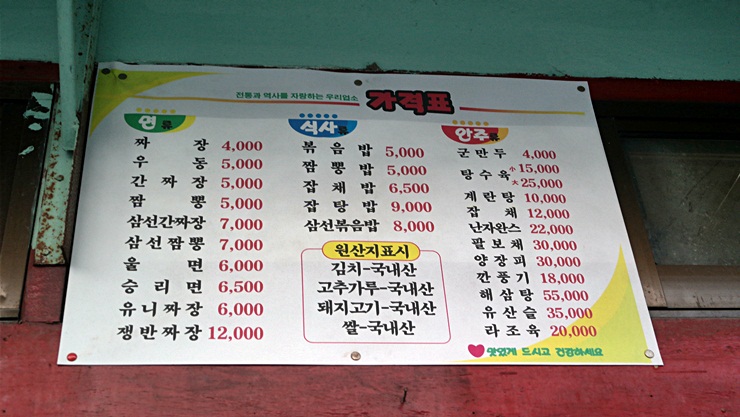 전통과 역사를 자랑하는 우리업소 가격표
면류
짜장 4,000
우동 5,000
간짜장 5,000
짬뽕 5,000
삼선간짜장 7,000
삼선짬뽕 7,000
울면 6,000
승리면 6,500
유니짜장 6,000
쟁반짜장 12,000
식사류
볶음밥 5,000
짬뽕밥 5,000
잡채밥 6,500
잡탕밥 9,000
삼선볶음밥 8,000
원산지표시
김치-국내산
고추가루-국내산
돼지고기-국내산
쌀-국내산
안주류
군만두 4,000
탕수육 小 15,000
大 25,000
계란탕 10,000
잡채 12,000
난자완스 22,000
팔보채 30,000
양장피 30,000
깐풍기 18,000
해삼탕 55,000
유산슬 35,000
라조육 20,000
맛있게 드시고 건강하세요